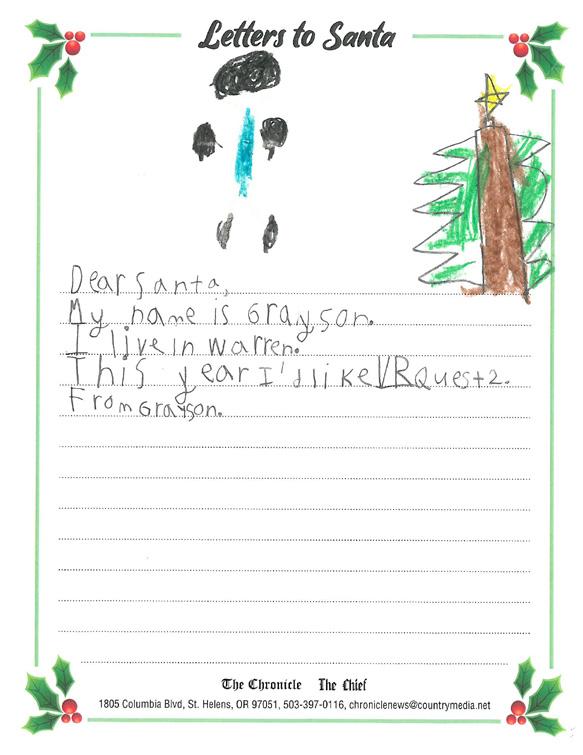 Letters to Santa
Dear Santa,
My name is Grayson.
I live in Warren.
This year I'd like VR Quest 2.
From Grayson.
The Chronicle The Chief
1805 Columbia Blvd, St. Helens, OR 97051, 503-397-0116, chroniclenews@countrymedia.net